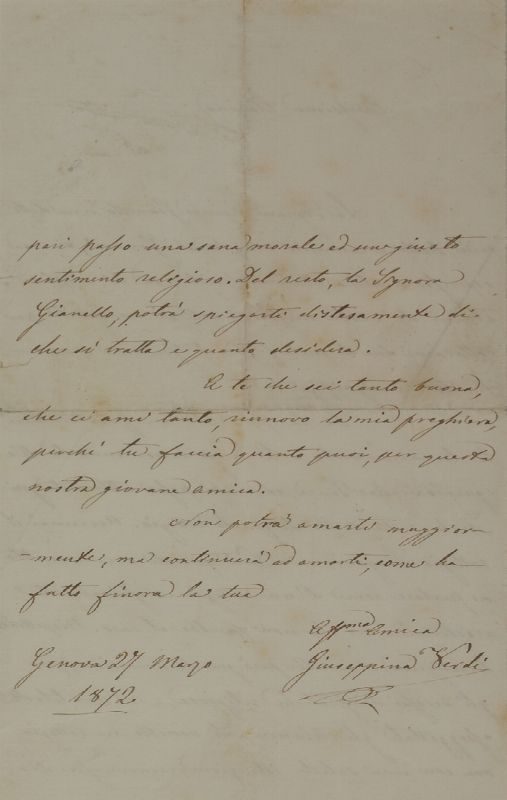 pari passo una sana morale ed un giusto
sentimento religioso. Del resto, la Signora
Gianello, potrà spiegarti distesamente di
che si tratta e quanto desidera.
A te che sei tanto buona,
che ci ami tanto, rinnovo la mia preghiera,
perchè tu faccia quanto puoi, per questa
nostra giovane amica.
Non potrà amarti maggior-
-mente, ma continuerà ad amarti, come ha
fatto finora la tua
Affma Amica
Genova 27 Marzo Giuseppina Verdi
1872